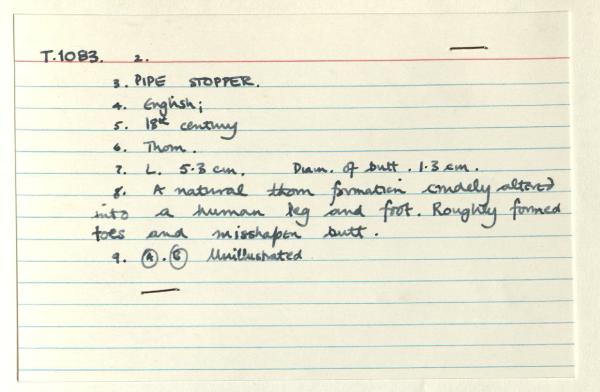 T.1083. 2.
3. PIPE STOPPER.
4. English;
5. 18th century
6. Thorn.
7. L. 5.3 cm. Diam. of butt. 1.3 cm.
8. A natural thorn formation crudely altered
into a human leg and foot. Roughly formed
toes and misshapen butt.
9. A. B Unillustrated